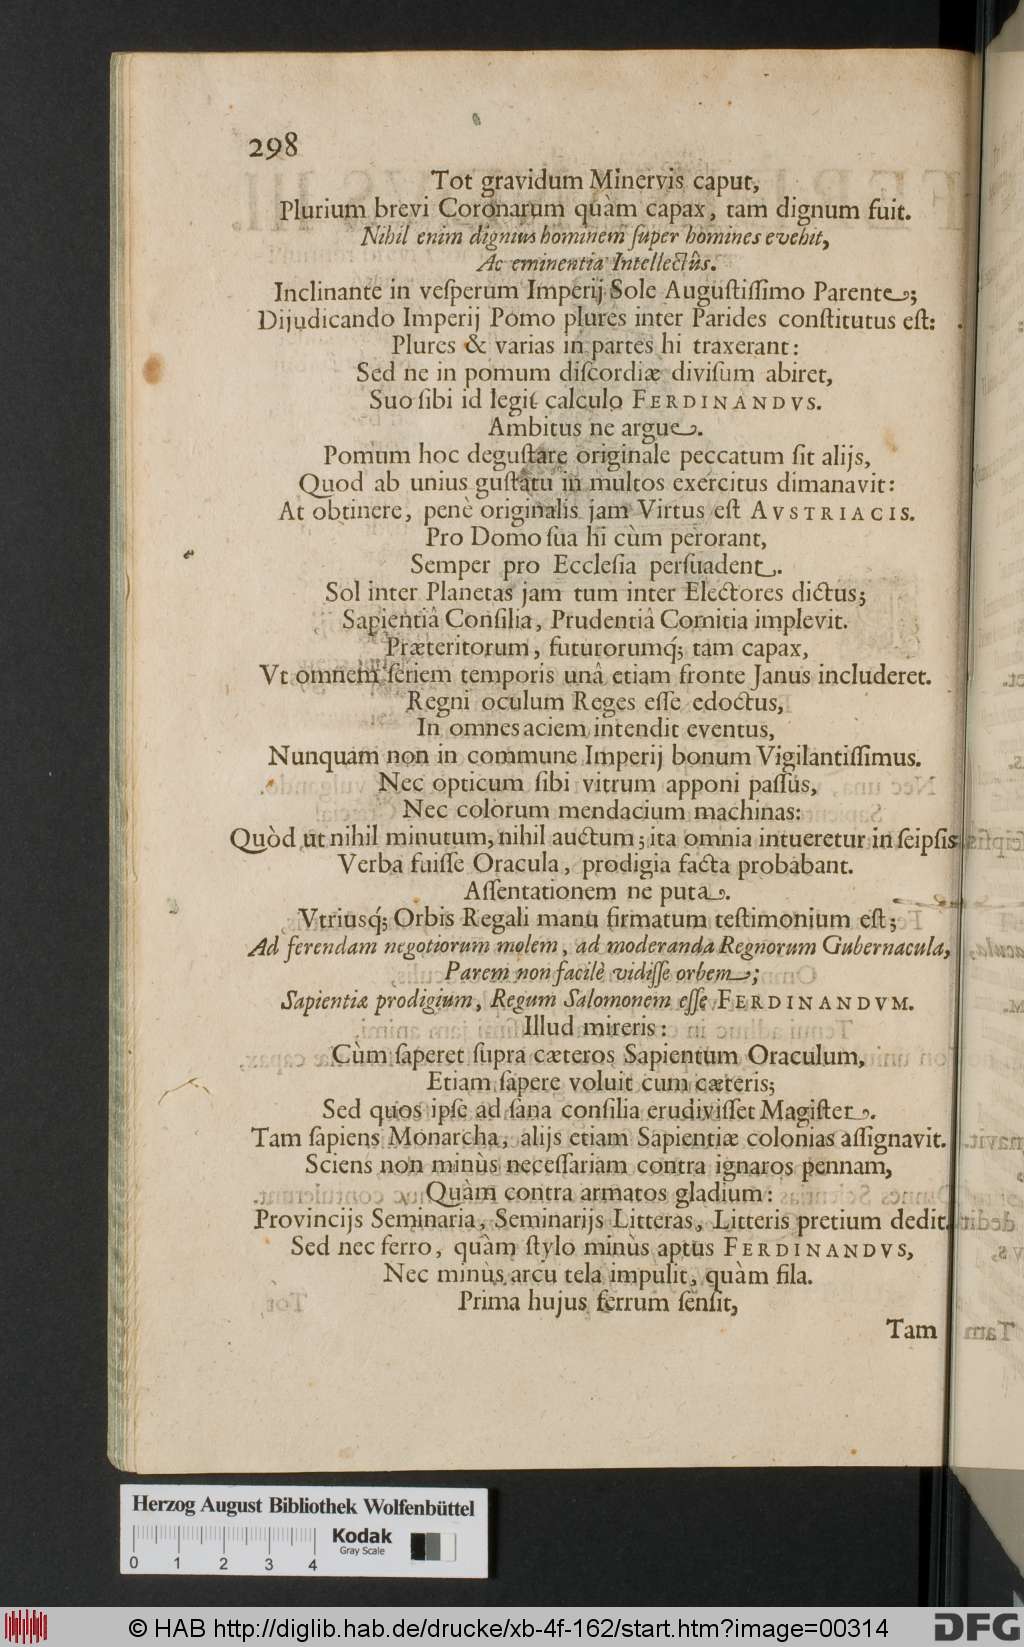 298
Tot gravidum Minervis caput,
Plurium brevi Coronarum quàm capax, tam dignum fuit.
Nihil enim dignius hominem ſuper homines evehit,
Ac eminentia Intellectûs.
Inclinante in veſperum Imperij Sole Auguſtiſſimo Parente;
Dijudicando Imperij Pomo plures inter Parides conſtitutus eſt:
Plures & varias in partes hi traxerant:
Sed ne in pomum diſcordiæ diviſum abiret,
Suo ſibi id legit calculo FERDINANDVS.
Ambitus ne argue.
Pomum hoc deguſtare originale peccatum ſit alijs,
Quod ab unius guſtatu in multos exercitus dimanavit:
At obtinere, penè originalis jam Virtus eſt AVSTRIACIS.
Pro Domo ſua hi cùm perorant,
Semper pro Eccleſia perſuadent.
Sol inter Planetas jam tum inter Electores dictus;
Sapientiâ Conſilia, Prudentiâ Comitia implevit.
Præteritorum, futurorumq́; tam capax,
Vt omnem ſeriem temporis unâ etiam fronte Janus includeret.
Regni oculum Reges eſſe edoctus,
In omnes aciem intendit eventus,
Nunquam non in commune Imperij bonum Vigilantiſſimus.
Nec opticum ſibi vitrum apponi paſſus,
Nec colorum mendacium machinas:
Quòd ut nihil minutum, nihil auctum; ita omnia intueretur in ſeipſis
Verba fuiſſe Oracula, prodigia facta probabant.
Aſſentationem ne puta.
Vtriusq́; Orbis Regali manu firmatum teſtimonium eſt;
Ad ferendam negotiorum molem, ad moderanda Regnorum Gubernacula,
Parem non facilè vidiſſe orbem;
Sapientiæ prodigium, Regum Salomonem eſſe FERDINANDVM.
Illud mireris:
Cùm ſaperet ſupra cæteros Sapientum Oraculum,
Etiam ſapere voluit cum cæteris;
Sed quos ipſe ad ſana conſilia erudiviſſet Magiſter.
Tam ſapiens Monarcha, alijs etiam Sapientiæ colonias aſſignavit.
Sciens non minùs neceſſariam contra ignaros pennam,
Quàm contra armatos gladium:
Provincijs Seminaria, Seminarijs Litteras, Litteris pretium dedit.
Sed nec ferro, quàm ſtylo minùs aptus FERDINANDVS,
Nec minùs arcu tela impulit, quàm fila.
Prima hujus ferrum ſenſit,
Tam
Herzog August Bibliothek Wolfenbüttel
0 1 2 3 4
Kodak
Gray Scale
© HAB http://diglib.hab.de/drucke/xb-4f-162/start.htm?image=00314
DFG